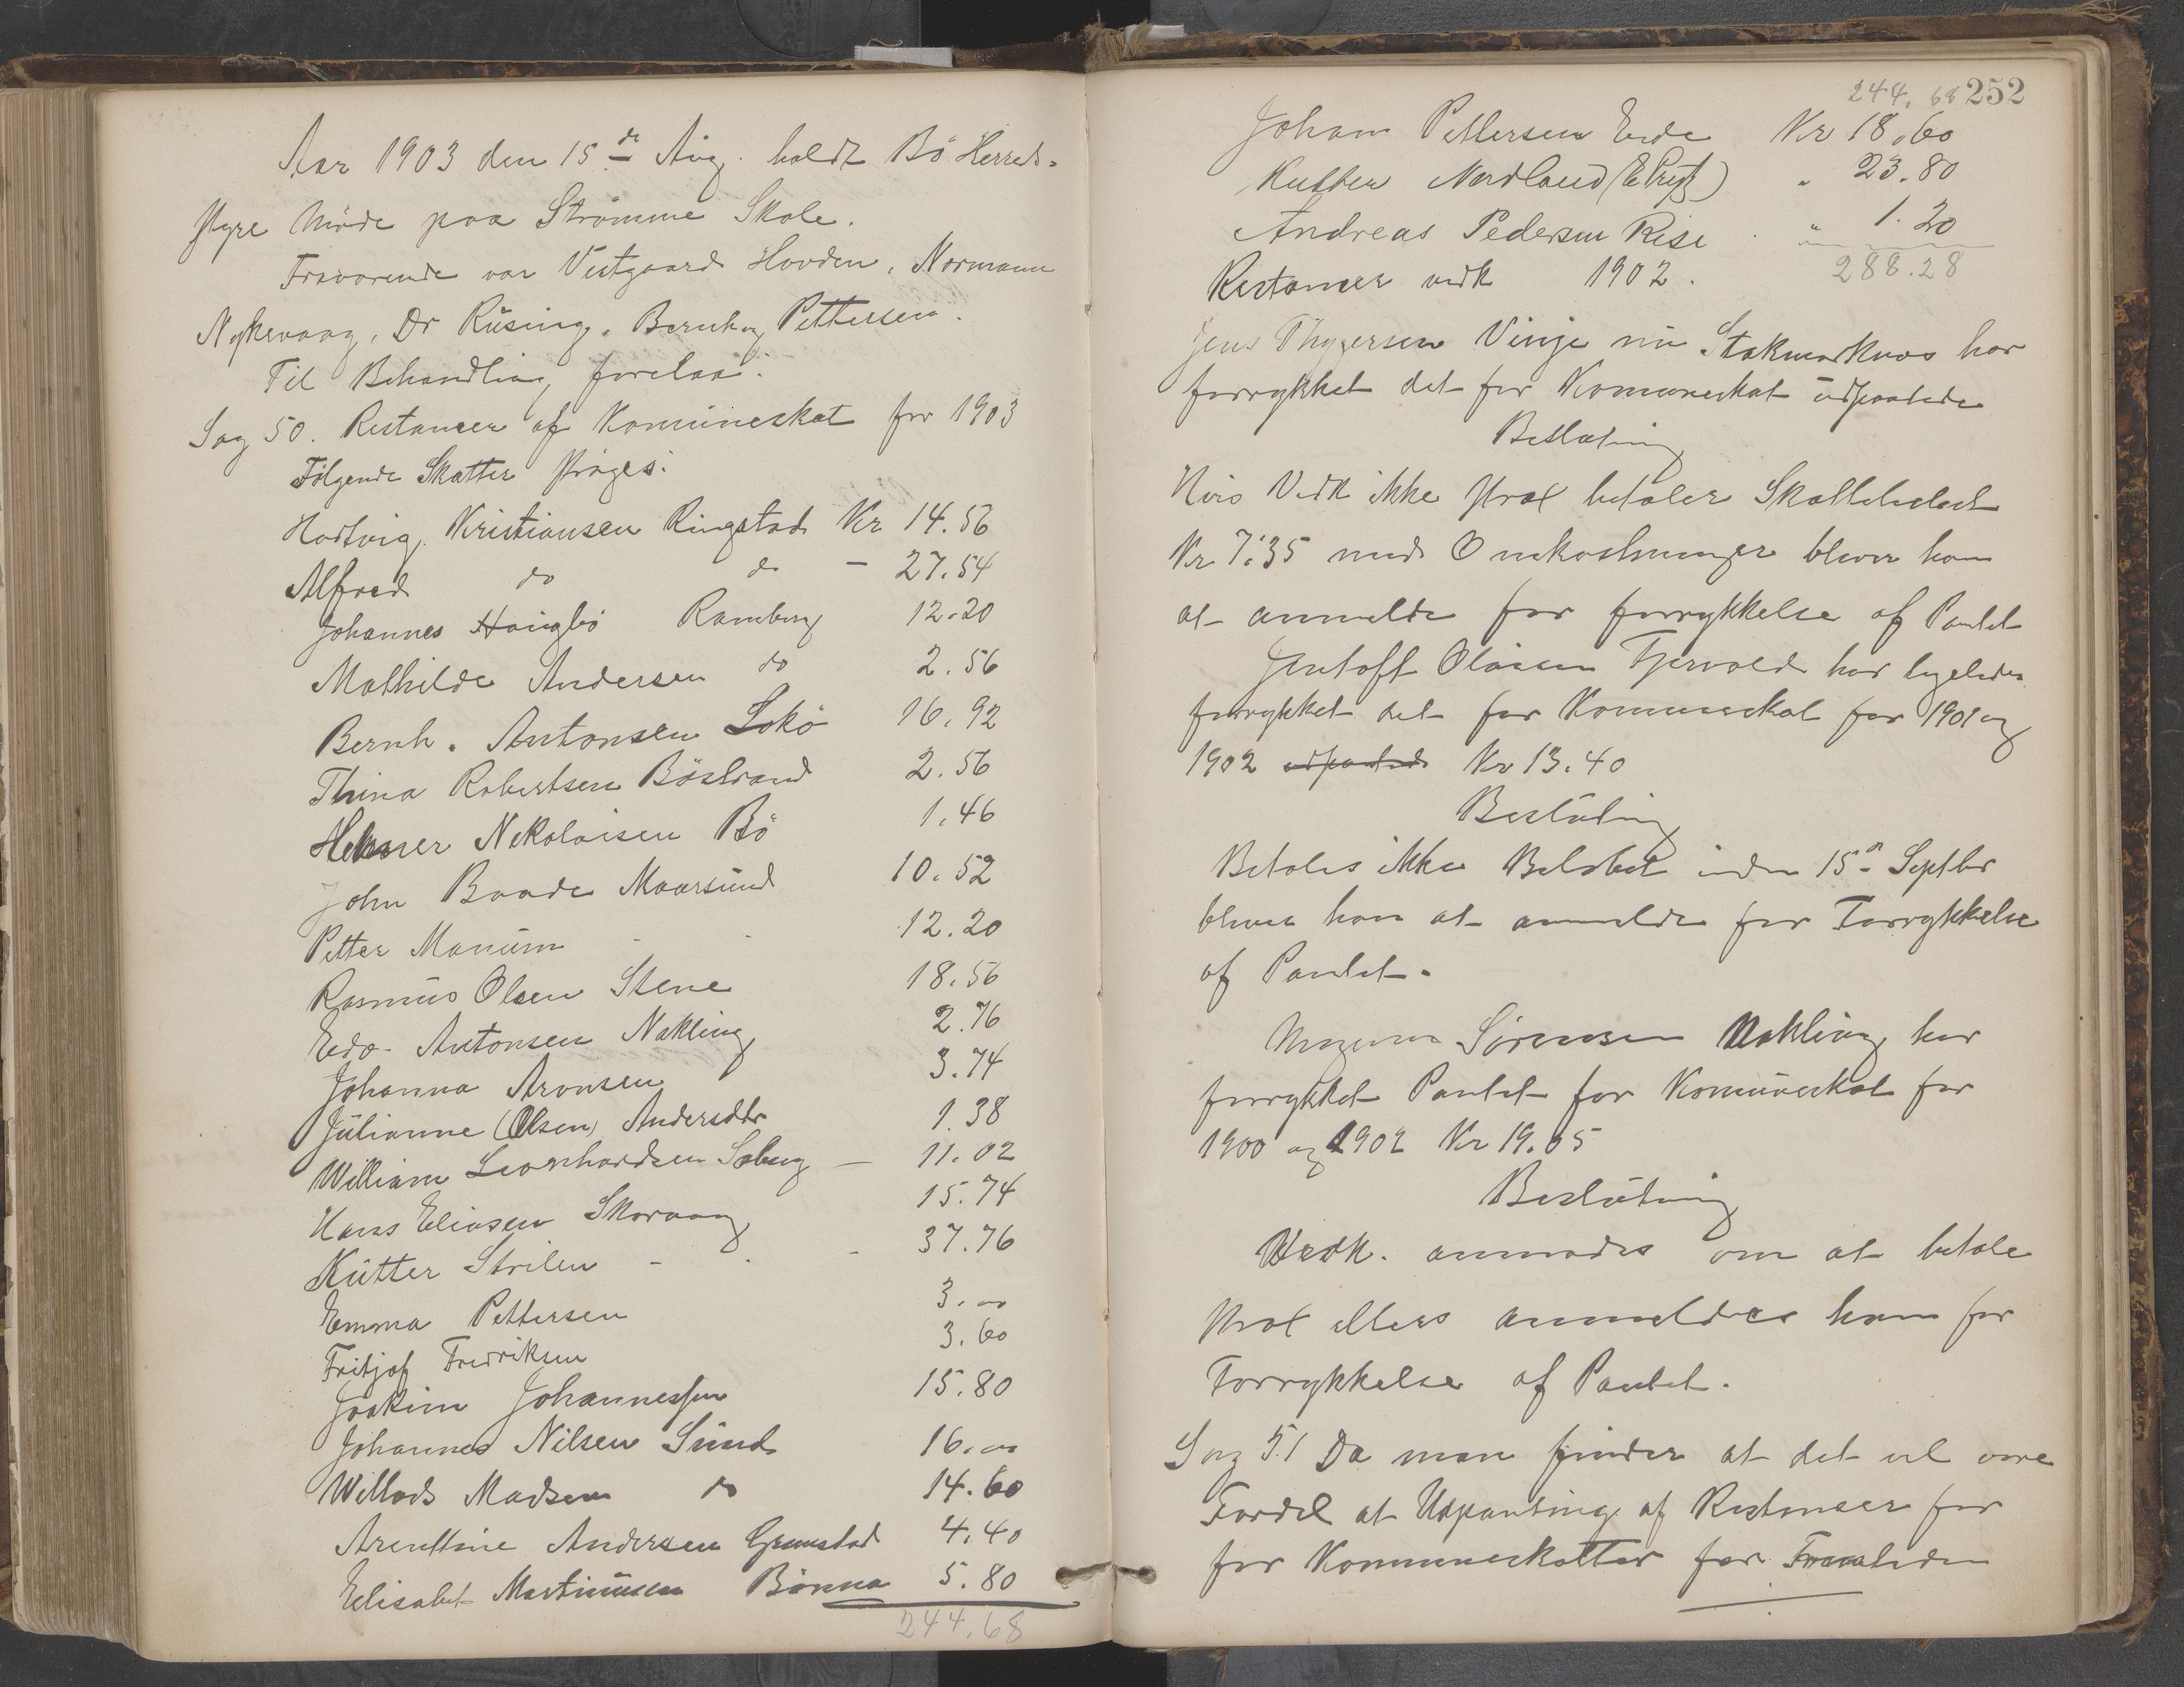 Aar 1903 den 15de Aug. holdt Bö Herreds-
styre Möde paa Strömme Skole.
Fraværende var Vestgaard Hovden, Normann
Nykvaag, Dr Rüsing, Bernh. Pettersen.
Til Behandling forelaa:
Sag 50. Restancer af Komüneskat for 1903
Følgende Skatter stryges:
Hartvig Kristiansen Ringstad Kr 14.56
Alfred do do - 27.54
Johannes Ramberg 12.20
Mathilde Andersen do 2.56
Bernh. Antonsen Lokö 16.92
Thina Robertsen Böstrand 2.56
Nikolaisen Bö 1.46
John Baade Maarsund 10.52
Petter Manüm 12.20
Rasmüs Olsen Stene 18.56
Edv. Antonsen Nakling 2.76
Johanna Aronsen 3.74
Jülianne (Olsen) Andersdtr 1.38
William Leonhardsen - 11.02
Hans Eliasen Skorvaag 15.74
Kütter Strilen - 37.76
Emma Pettersen 3.00
Fritjof Fredriksen 3.60
Joakim Johannessen 15.80
Johannes Nilsen Sünd 16.00
Willads Madsen do 14.60
Arentine Andersen Grimstad 4.40
Elisabet Martinüsen Bönna 5.80
244.68
244.68 252
Johan Pettersen Eide Kr 18.60
Kutter Nordland " 23.80
Andreas Pedersen Rise " 1.20
288.28
Restancer vedk 1902.
Jens Thygersen Vinje nü Stokmarknes har
forrykket det for Komuneskat üdpantede
Beslutning
Hvis Vedk ikke strax betaler Skattebeløbet
Kr 7.35 med Omkostninger bliver han
at anmelde for forrykkelse af Pantet
Jentoft Olaisen Fjervold har ligeledes
forrykket det for Kommuneskat for 1901 og
1902 udpantede Kr 13.40
Beslütning
Betales ikke Beløbet inden 15de Septbr
bliver han at anmelde for Forrykkelse
af Pantet.
Magnus Sörensen Nakling har
forrykket Pantet for Komüneskat for
1900 og 1902 Kr 19.05
Beslütning
Vedk. anmodes om at betale
strax ellers anmeldes ham for
Forrykkelse af Pantet.
Sag 51 Da man finder at det vil være
Fordel at Udpanting af Restancer for
for Kommuneskatter for Fremtiden